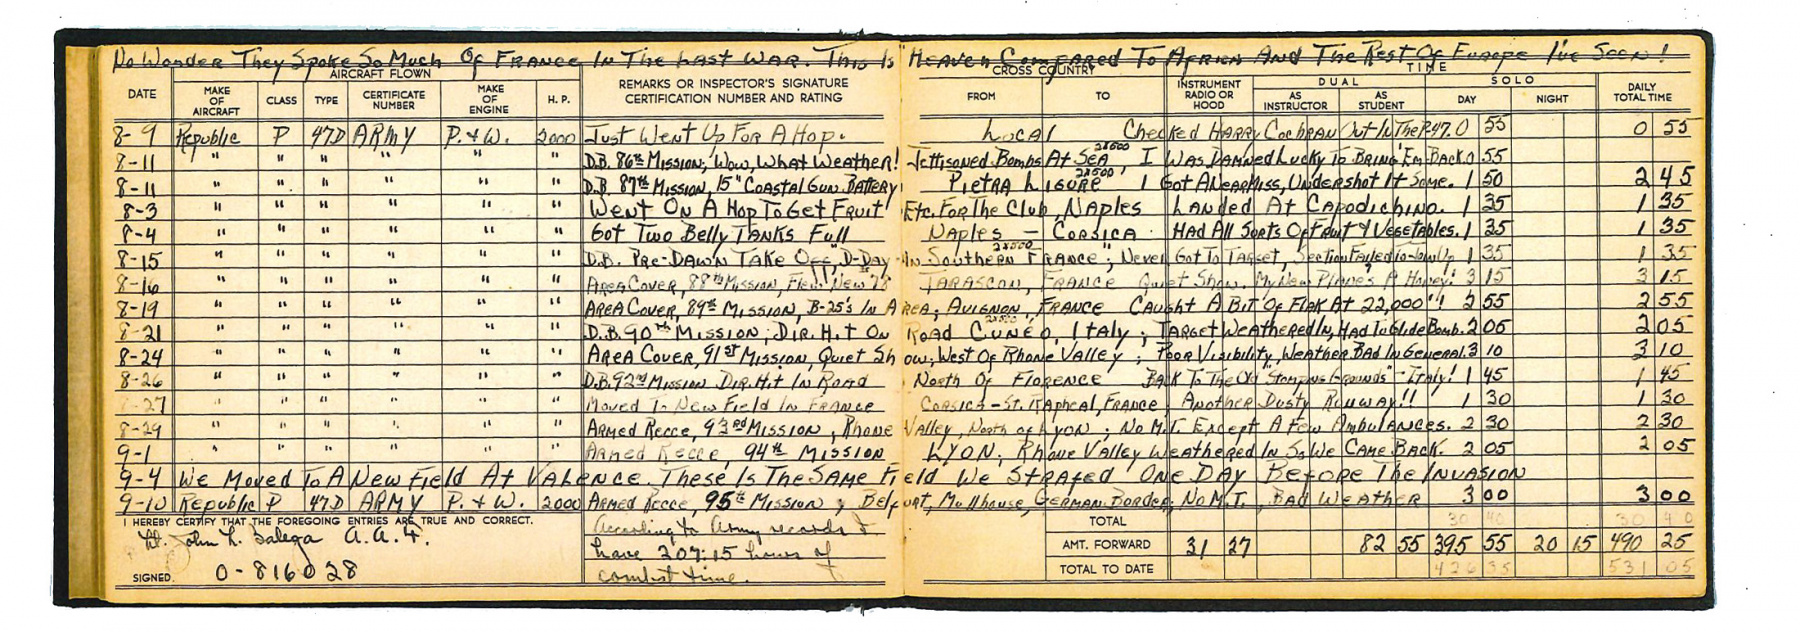 No Wonder They Spoke So Much Of France In The Last War. This Is Heaven Compared To Africa And The Rest Of Europe I've Seen!
AIRCRAFT FLOWN CROSS COUNTRY TIME
DATE MAKE OF AIRCRAFT CLASS TYPE CERTIFICATE NUMBER MAKE OF ENGINE H. P. REMARKS OR INSPECTOR'S SIGNATURE CERTIFICATION NUMBER AND RATING FROM TO INSTRUMENT RADIO OR HOOD DUAL AS INSTRUCTOR AS STUDENT SOLO DAY NIGHT DAILY TOTAL TIME
8-9 Republic P 47D ARMY P. & W. 2000 Just Went Up For A Hop. Local Checked Harry Cochran Out In The P-47. 0 55 0 55
8-11 " " " " " " D.B. 86th Mission; Wow, What Weather! Jettisoned Bombs At Sea 2x500, I Was Damned Lucky To Bring 'Em Back. 0 55
8-11 " " " " " " D.B. 87th Mission, 15" Coastal Gun Battery Pietra Ligure 2x500 I Got A Near Miss, Undershot It Some. 1 50 2 45
8-3 " " " " " " Went On A Hop To Get Fruit Etc. For The Club, Naples Landed At Capodichino. 1 35 1 35
8-4 " " " " " " Got Two Belly Tanks Full Naples - Corsica Had All Sorts Of Fruit & Vegetables. 1 35 1 35
8-15 " " " " " " D.B. Pre-Dawn Take Off, "D-Day" In Southern France 2x500; Never Got To Target, Section Failed To Join Up 1 35 1 35
8-16 " " " " " " Area Cover, 88th Mission, Flew New 75 Tarascon, France Quiet Show. My New Plane's A Honey! 3 15 3 15
8-19 " " " " " " Area Cover, 89th Mission, B-25's In Area, Avignon, France Caught A Bit Of Flak At 22,000'! 2 55 2 55
8-21 " " " " " " D.B. 90th Mission; Dir. Hit On Road Cuneo, Italy 2x500; Target Weathered In, Had To Glide Bomb. 2 05 2 05
8-24 " " " " " " Area Cover, 91st Mission, Quiet Show; West Of Rhone Valley; Poor Visibility, Weather Bad In General. 3 10 3 10
8-26 " " " " " " D.B. 92nd Mission Dir. Hit In Road North Of Florence Back To The Old "Stomping Grounds" - Italy! 1 45 1 45
8-27 " " " " " " Moved To New Field In France Corsica - St. Rapheal, France, Another Dusty Runway!! 1 30 1 30
8-29 " " " " " " Armed Recce, 93rd Mission, Rhone Valley, North of Lyon; No M.T. Except A Few Ambulances. 2 30 2 30
9-1 " " " " " " Armed Recce, 94th Mission Lyon; Rhone Valley Weathered In So We Came Back. 2 05 2 05
9-4 We Moved To A New Field At Valence. These Is The Same Field We Strafed One Day Before The Invasion
9-10 Republic P 47D ARMY P. & W. 2000 Armed Recce, 95th Mission; Belfourt, Mullhouse, German Border; No M.T., Bad Weather 3 00 3 00
I HEREBY CERTIFY THAT THE FOREGOING ENTRIES ARE TRUE AND CORRECT. According to Army records I TOTAL 30 40 30 40
Lt. John L. Balega A.A.F. have 207:15 hours of AMT. FORWARD 31 27 82 55 395 55 20 15 490 25
SIGNED. O-816028 combat time. TOTAL TO DATE 426 35 531 05